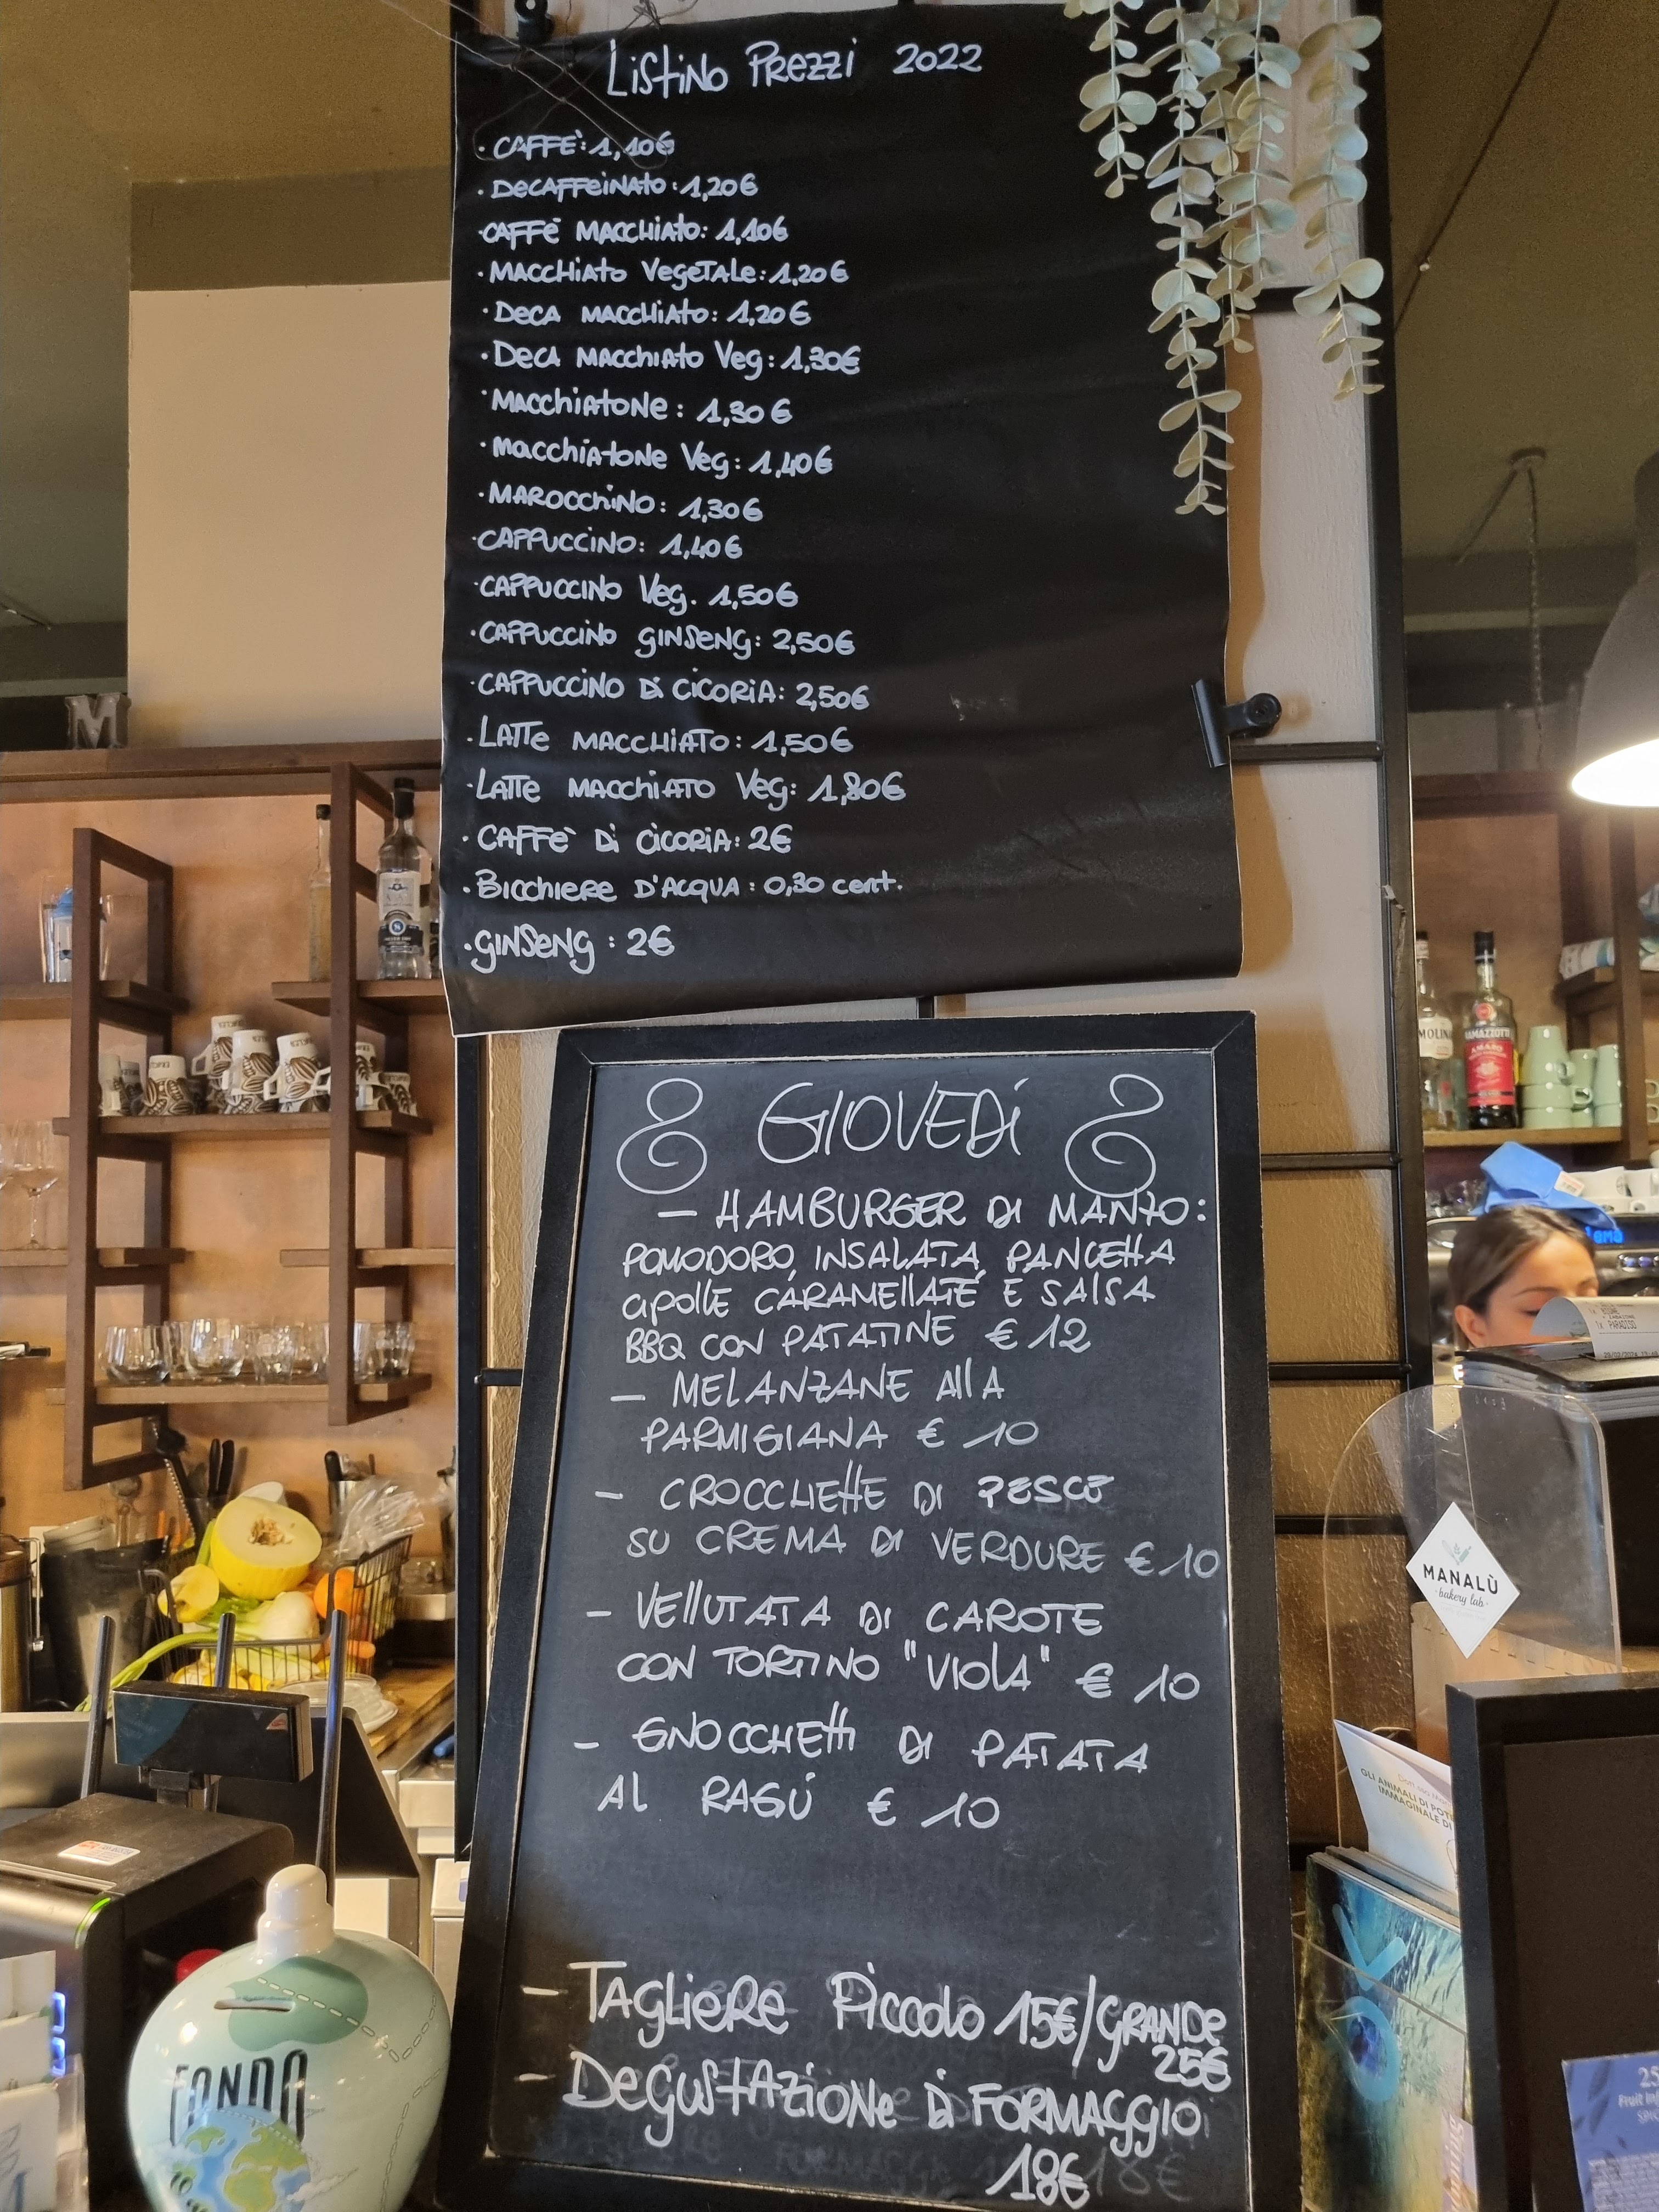 Listino Prezzi 2022
· CAFFÈ: 1,10€
· Decaffeinato: 1,20€
· CAFFÈ MACCHIATO: 1,10€
· MACCHIATO VegeTALe: 1,20€
· DecA MACCHIATO: 1,20€
· DecA MACChiATO Veg: 1,30€
· MACChiATONe: 1,30€
· MACChiATONe Veg: 1,40€
· MAROCChiNO: 1,30€
· CAPPUCCINO: 1,40€
· CAPPUCCINO Veg. 1,50€
· CAPPUCCINO GINSeNG: 2,50€
· CAPPUCCINO Di CICORIA: 2,50€
· LATTe MACCHIATO: 1,50€
· LATTe MACChiATO Veg: 1,80€
· CAFFÈ Di CICORIA: 2€
· BICChiere D'ACQUA: 0,30 cent.
· GINSeNG: 2€
GIOVEDì
— HAMBURGER DI MANZO:
POMODORO, INSALATA, PANCETTA
CIPOLLE CARAMELLATE E SALSA
BBQ CON PATATINE € 12
— MELANZANE ALLA
PARMIGIANA € 10
— CROCCHETTE DI PESCE
SU CREMA DI VERDURE € 10
— VELLUTATA DI CAROTE
CON TORTINO "VIOLA" € 10
— GNOCCHETTI DI PATATA
AL RAGÚ € 10
— TAGLieRe Piccolo 15€/GRANDe
25€
— DeGUSTAZiONe Di FORMAGGIO
18€
M
MOLINA
RAMAZZOTTI
AMARO
1x PARADISO
MANALÙ
· bakery lab ·
GLI ANIMALI DI POT
IMMAGINALE DI
FONDO